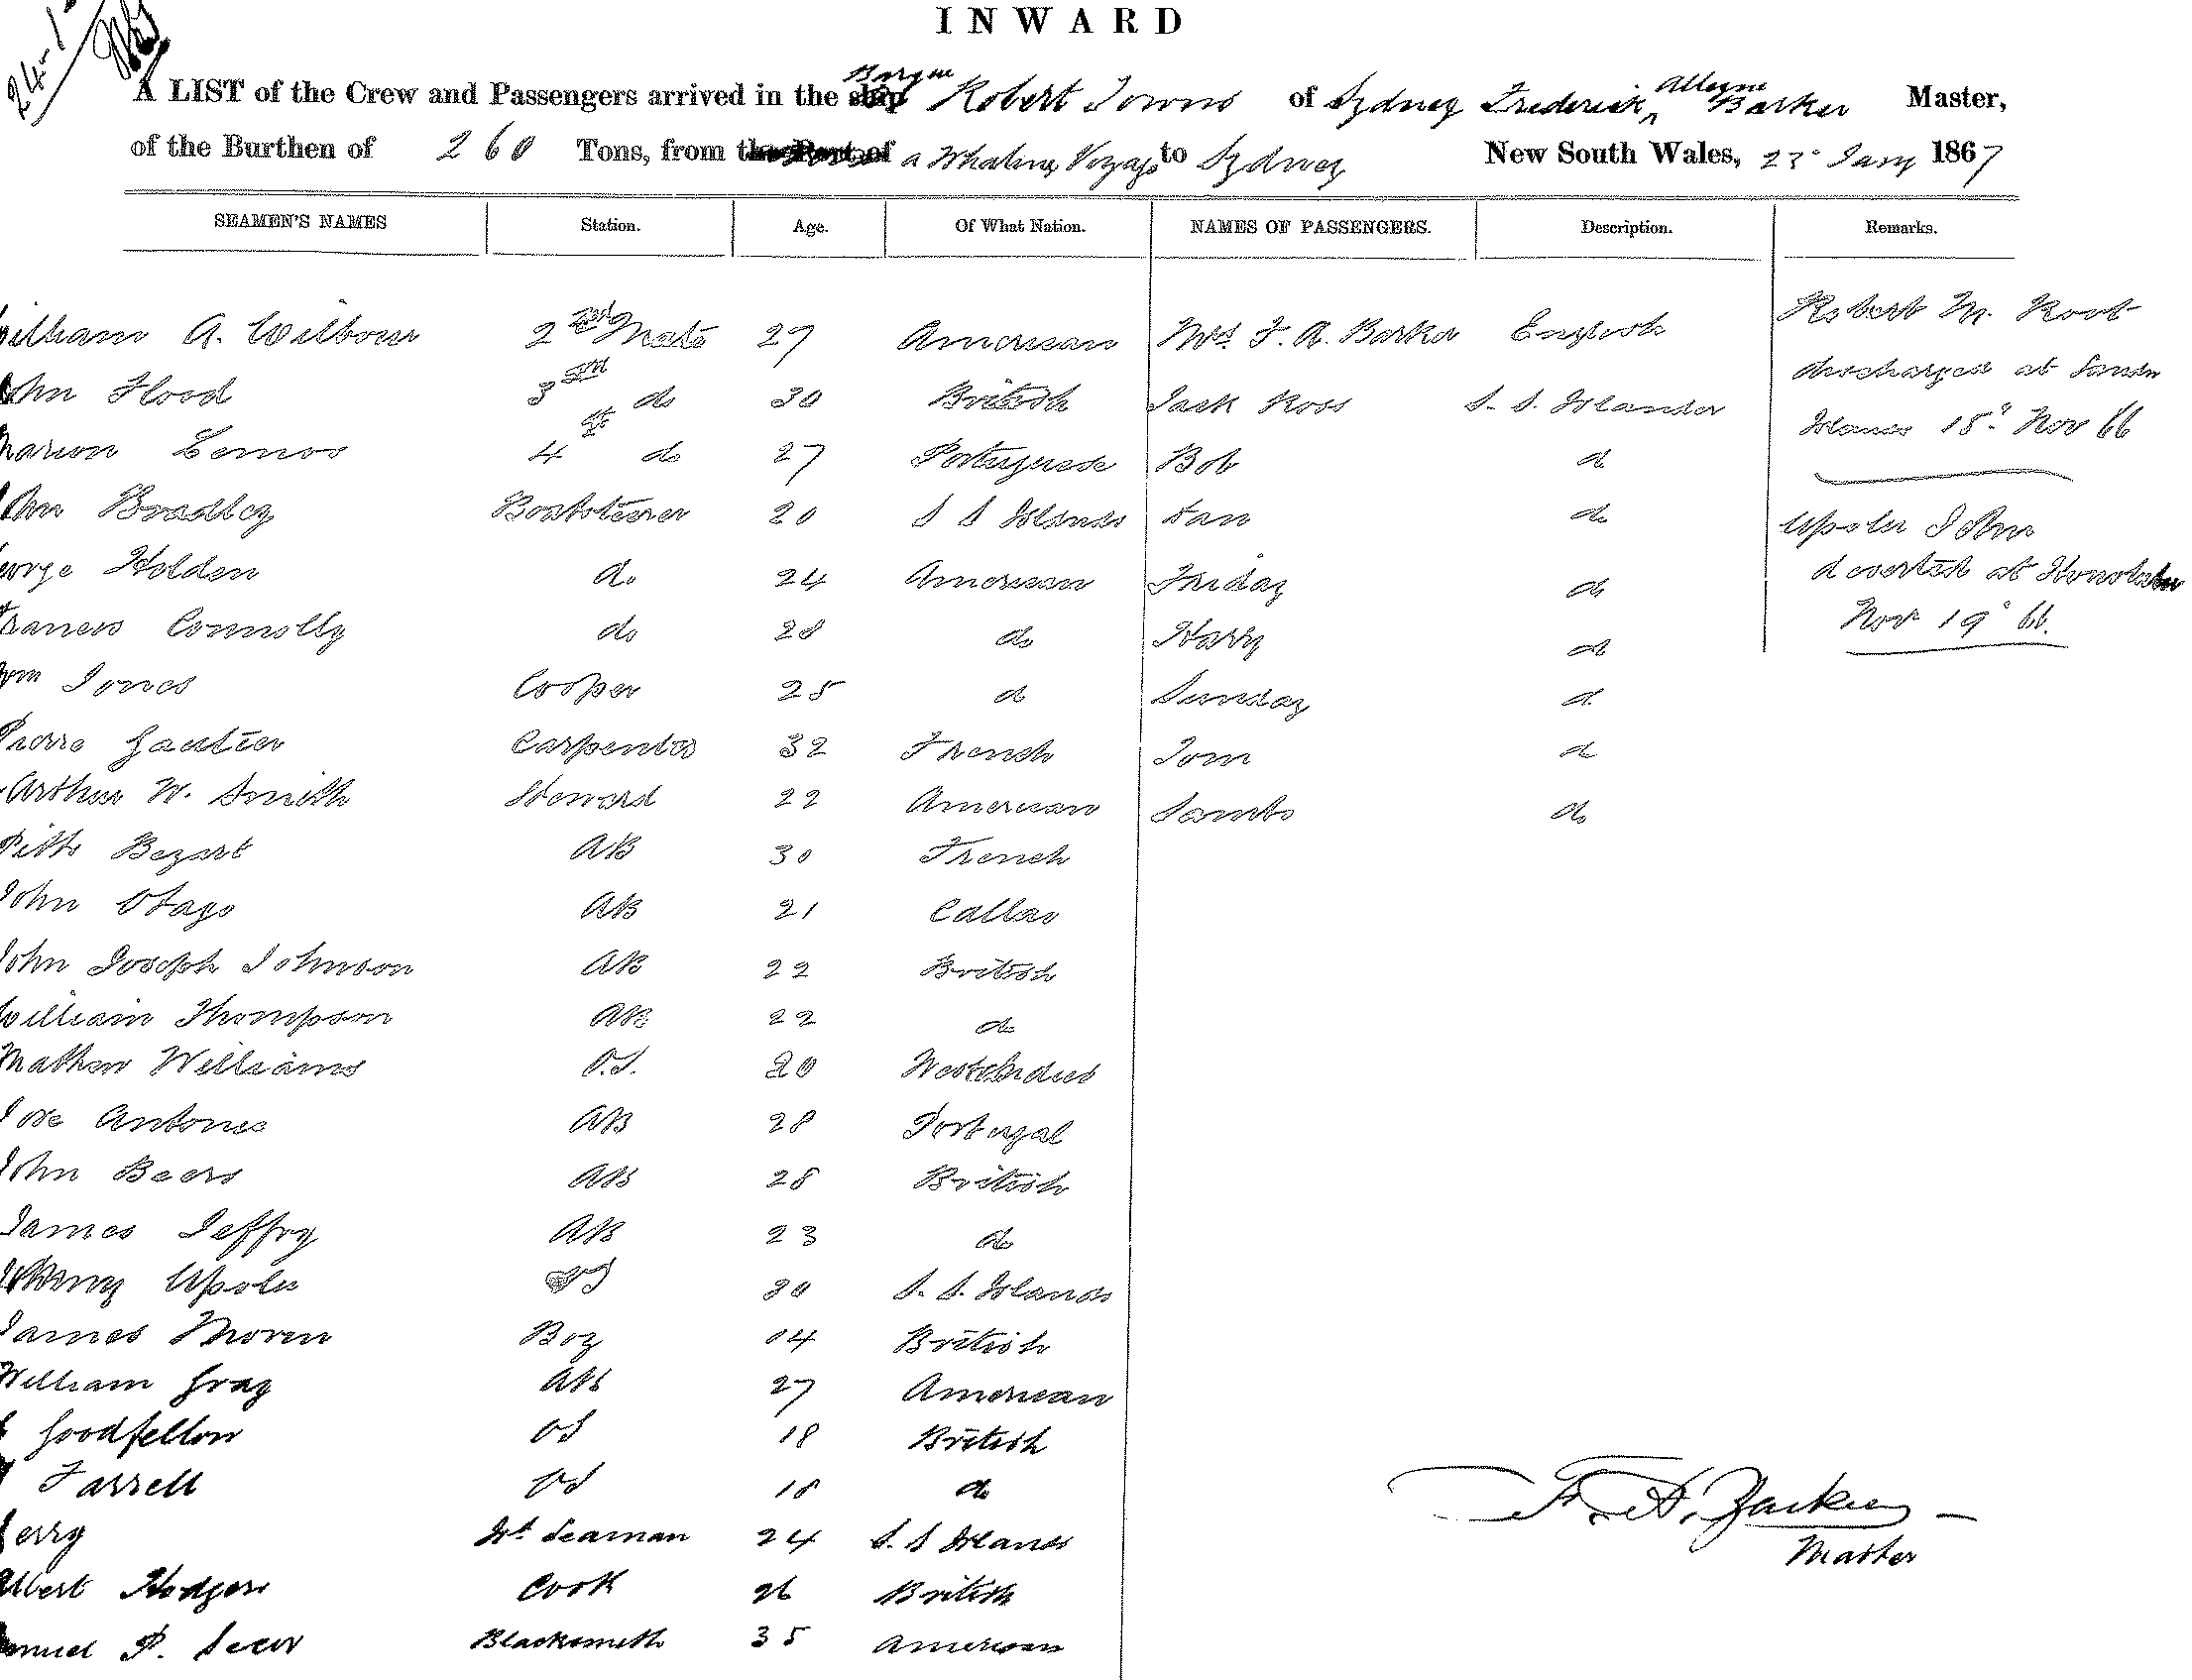 24-1
INWARD
A LIST of the Crew and Passengers arrived in the Barque Robert Towns of Sydney Frederick Alleyne Barker Master,
of the Burthen of 260 Tons, from a Whaling Voyage to Sydney New South Wales, 23 Jany 1867
SEAMEN'S NAMES Station. Age. Of What Nation. NAMES OF PASSENGERS. Description. Remarks.
illiam A. Wilbour 2nd Mate 27 American Mrs F. A. Barker English Robert M. Root
ohn Flood 3rd do 30 British Jack Ross S. S. Islander discharged at
Lemos 4th do 27 Portuguese Bob do Islands 15th Nov 66
ohn Bradley Boatsteerer 20 S S Islands Dan do Upolu John
eorge Holden do 24 American Friday do deserted at Honolulu
Francis Connolly do 28 do Harry do Nov 19 66.
Wm Jones Cooper 25 do Sunday do
Pierre Gautier Carpenter 32 French Tom do
Arthur W. Smith Steward 22 American Sambo do
Bezart AB 30 French
John Otago AB 21 Callao
John Joseph Johnson AB 22 British
William Thompson AB 22 do
Mathew Williams O.S. 20 West Indies
Jose Antonio AB 28 Portugal
John Beers AB 28 British
James Jeffry AB 23 do
Upolu OS 30 S. S. Islands
James Moren Boy 14 British
William Gray AB 27 American
Goodfellow OS 18 British
Farrell OS 18 do
Jerry Seaman 24 S. S Islands
Albert Hodgers Cook 26 British
amuel P. Blacksmith 35 American
F. A. Barker
Master